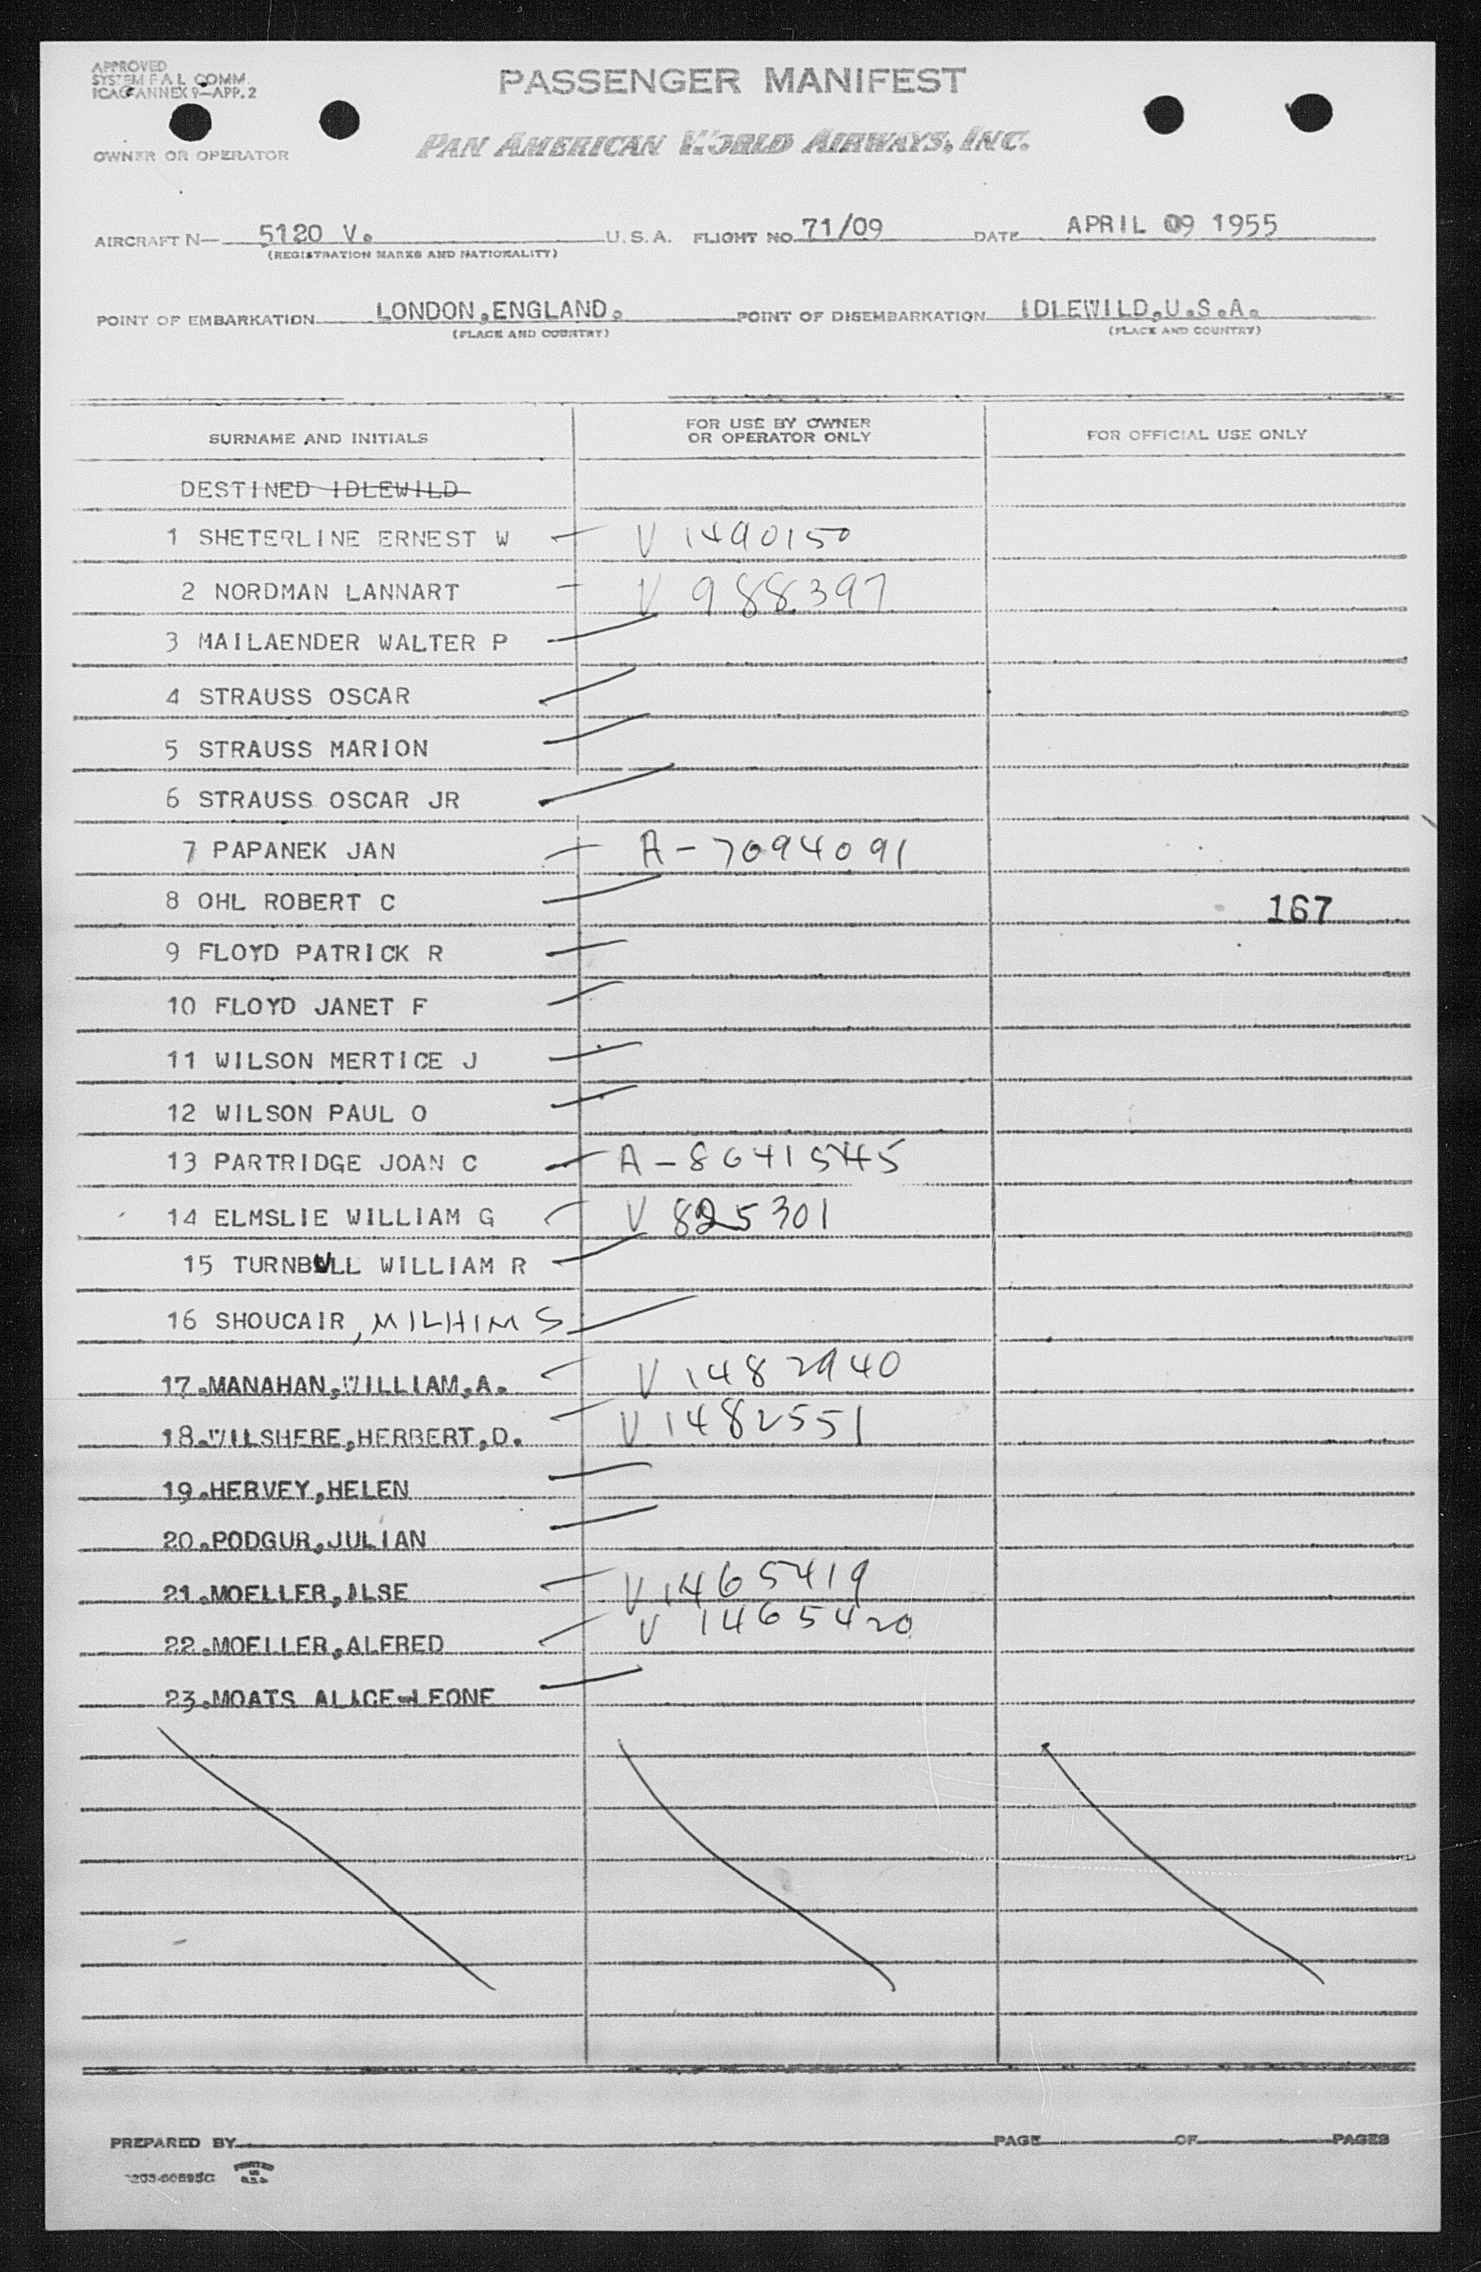 APPROVED
SYSTEM F A L COMM.
ICAO ANNEX 9—APP. 2
PASSENGER MANIFEST
OWNER OR OPERATOR
PAN AMERICAN WORLD AIRWAYS, INC.
AIRCRAFT N— 5120 V. U.S.A. FLIGHT NO. 71/09 DATE APRIL 09 1955
(REGISTRATION MARKS AND NATIONALITY)
POINT OF EMBARKATION LONDON,ENGLAND. POINT OF DISEMBARKATION IDLEWILD,U.S.A.
(PLACE AND COUNTRY) (PLACE AND COUNTRY)
SURNAME AND INITIALS FOR USE BY OWNER OR OPERATOR ONLY FOR OFFICIAL USE ONLY
DESTINED IDLEWILD
1 SHETERLINE ERNEST W V 1490150
2 NORDMAN LANNART V 988397
3 MAILAENDER WALTER P
4 STRAUSS OSCAR
5 STRAUSS MARION
6 STRAUSS OSCAR JR
7 PAPANEK JAN A-7094091
8 OHL ROBERT C 167
9 FLOYD PATRICK R
10 FLOYD JANET F
11 WILSON MERTICE J
12 WILSON PAUL O
13 PARTRIDGE JOAN C A-8641545
14 ELMSLIE WILLIAM G V 825301
15 TURNBULL WILLIAM R
16 SHOUCAIR, MILHIM S
17.MANAHAN,WILLIAM,A. V 1482940
18.WILSHERE,HERBERT,D. V 1482551
19.HERVEY,HELEN
20.PODGUR,JULIAN
21.MOELLER,ILSE V 1465419
22.MOELLER,ALFRED V 1465420
23.MOATS ALICE-LEONE
PREPARED BY PAGE OF PAGES
PRINTED
IN
U.S.A.